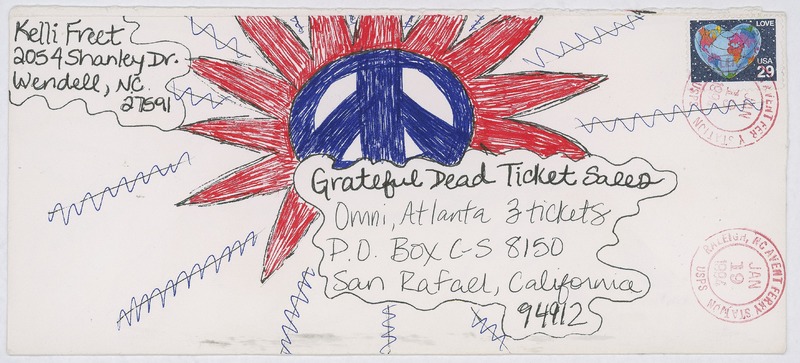 Kelli Freet
2054 Shanley Dr.
Wendell, NC.
27591
LOVE
USA
29
AVENT FERRY STATION
JAN
19
1994
USPS
Grateful Dead Ticket Sales
Omni, Atlanta 3 tickets
P.O. Box C-S 8150
San Rafael, California
94912
RALEIGH, NC AVENT FERRY STATION
JAN
19
1994
USPS